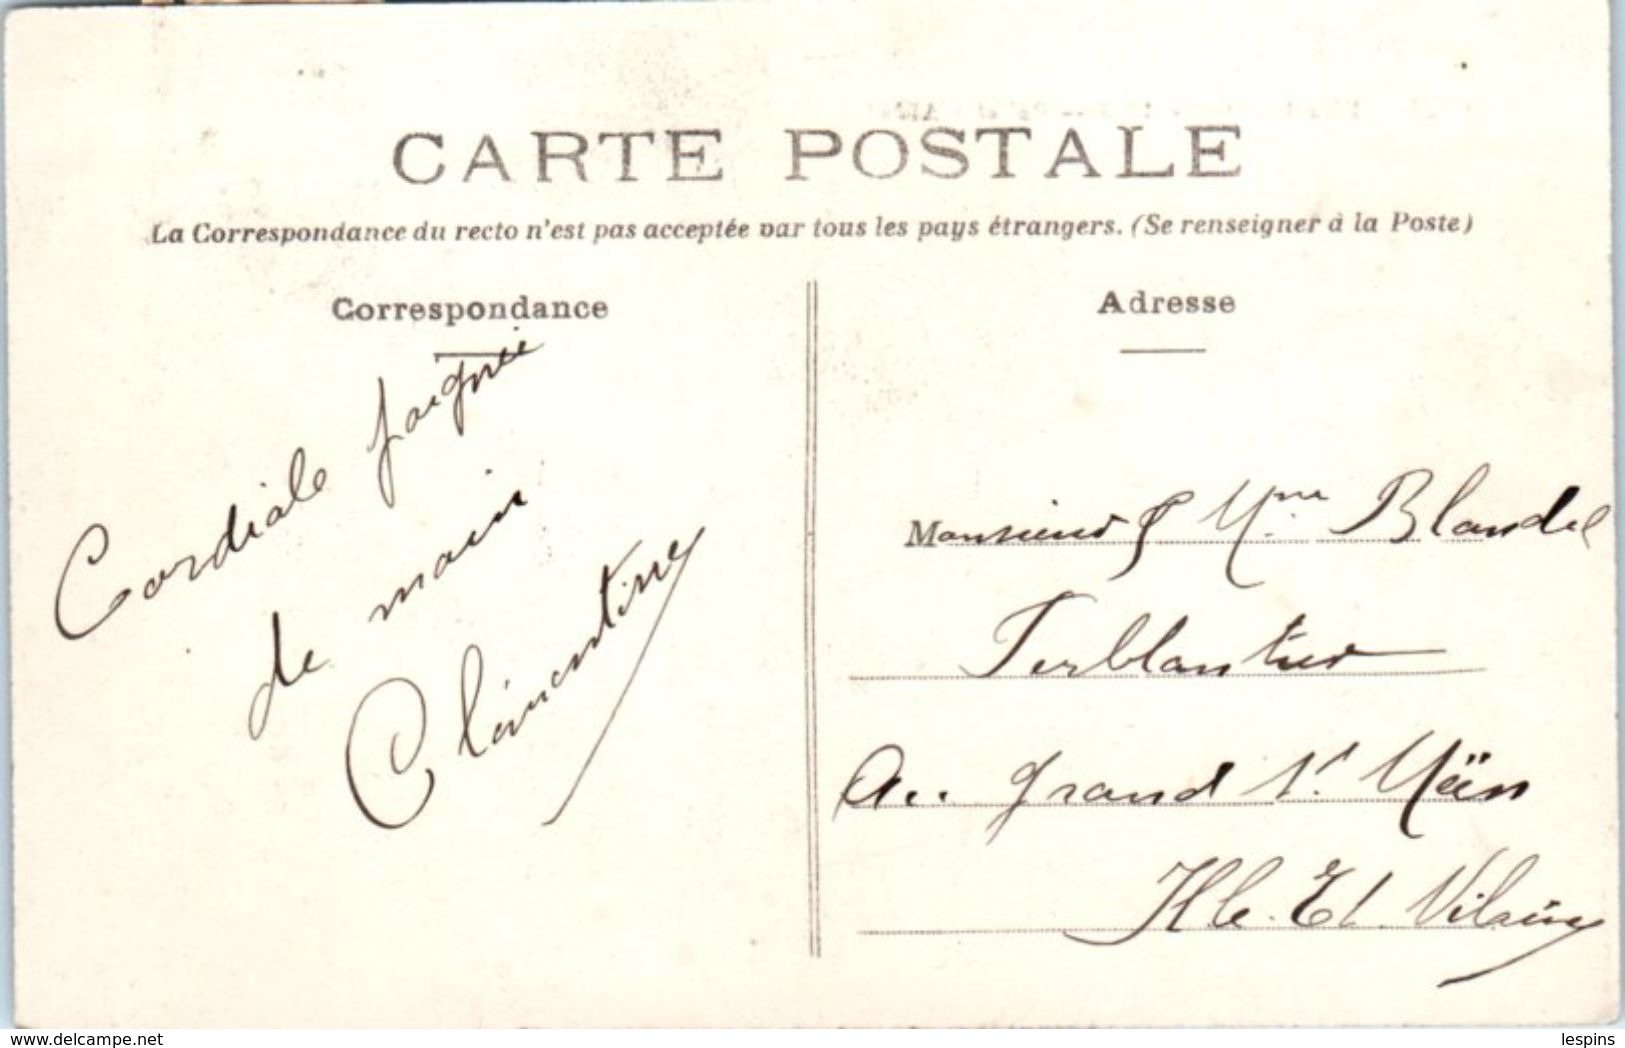 CARTE POSTALE
La Correspondance du recto n'est pas acceptée par tous les pays étrangers. (Se renseigner à la Poste)
Correspondance
Cordiale poignée
de main
Clémentine
Adresse
Monsieur & Mme Blandel
Ferblantier
Au grand St. Méen
Ille Et Vilaine
www.delcampe.net
lespins